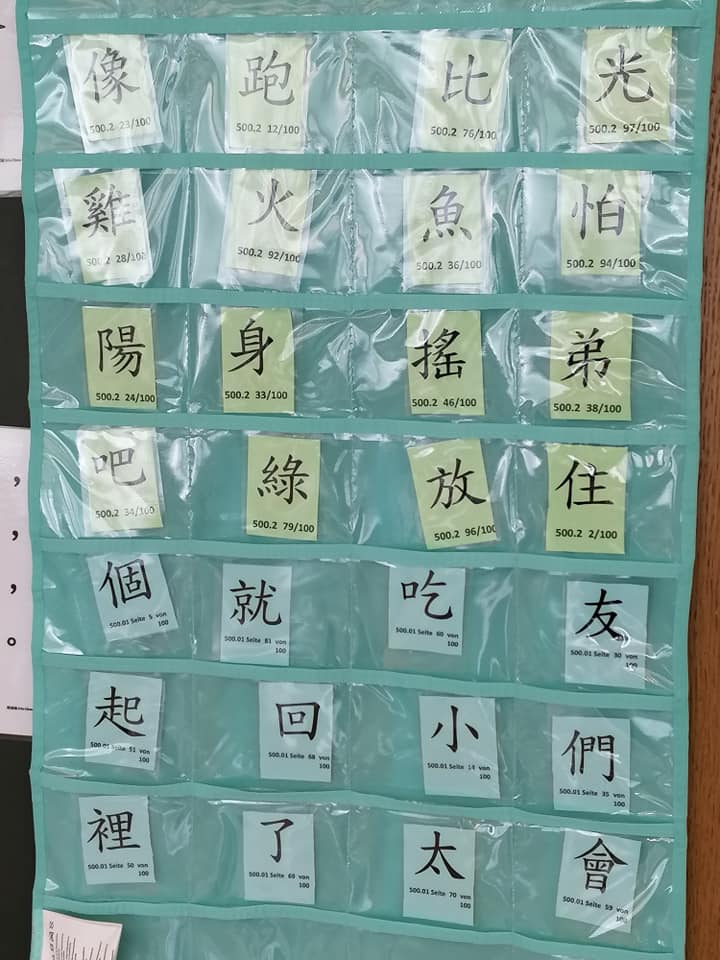 像 跑 比 光
500.2 23/100 500.2 12/100 500.2 76/100 500.2 97/100
雞 火 魚 怕
500.2 28/100 500.2 92/100 500.2 36/100 500.2 94/100
陽 身 搖 弟
500.2 24/100 500.2 33/100 500.2 46/100 500.2 38/100
吧 綠 放 住
500.2 34/100 500.2 79/100 500.2 96/100 500.2 2/100
個 就 吃 友
500.01 Seite 5 von 100 500.01 Seite 81 von 100 500.01 Seite 60 von 100 500.01 Seite 90 von 100
起 回 小 們
500.01 Seite 51 von 100 500.01 Seite 68 von 100 500.01 Seite 14 von 100 500.01 Seite 35 von 100
裡 了 太 會
500.01 Seite 50 von 100 500.01 Seite 66 von 100 500.01 Seite 70 von 100 500.01 Seite 59 von 100
,
,
,
。